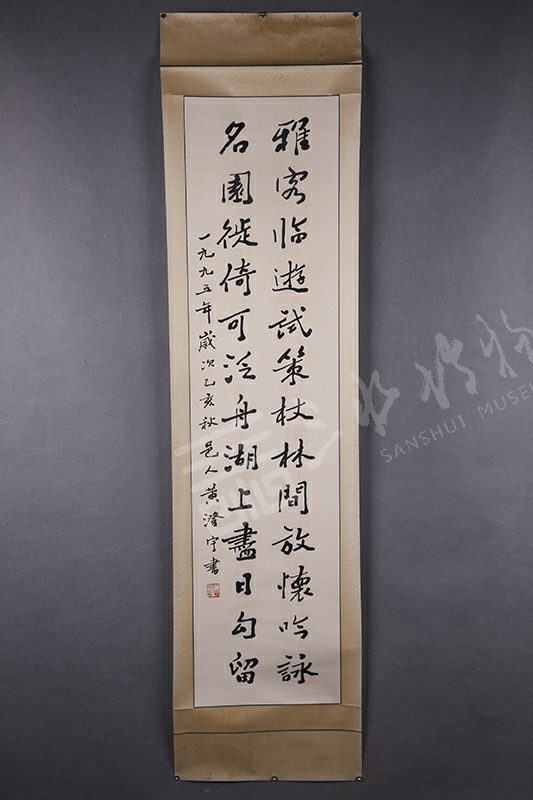 雅客临遊試策杖林間放懷吟詠
名園徙倚可泛舟湖上盡日勾留
一九九五年歲次乙亥秋邑人黄澄宇書
SANSHUI MUSE